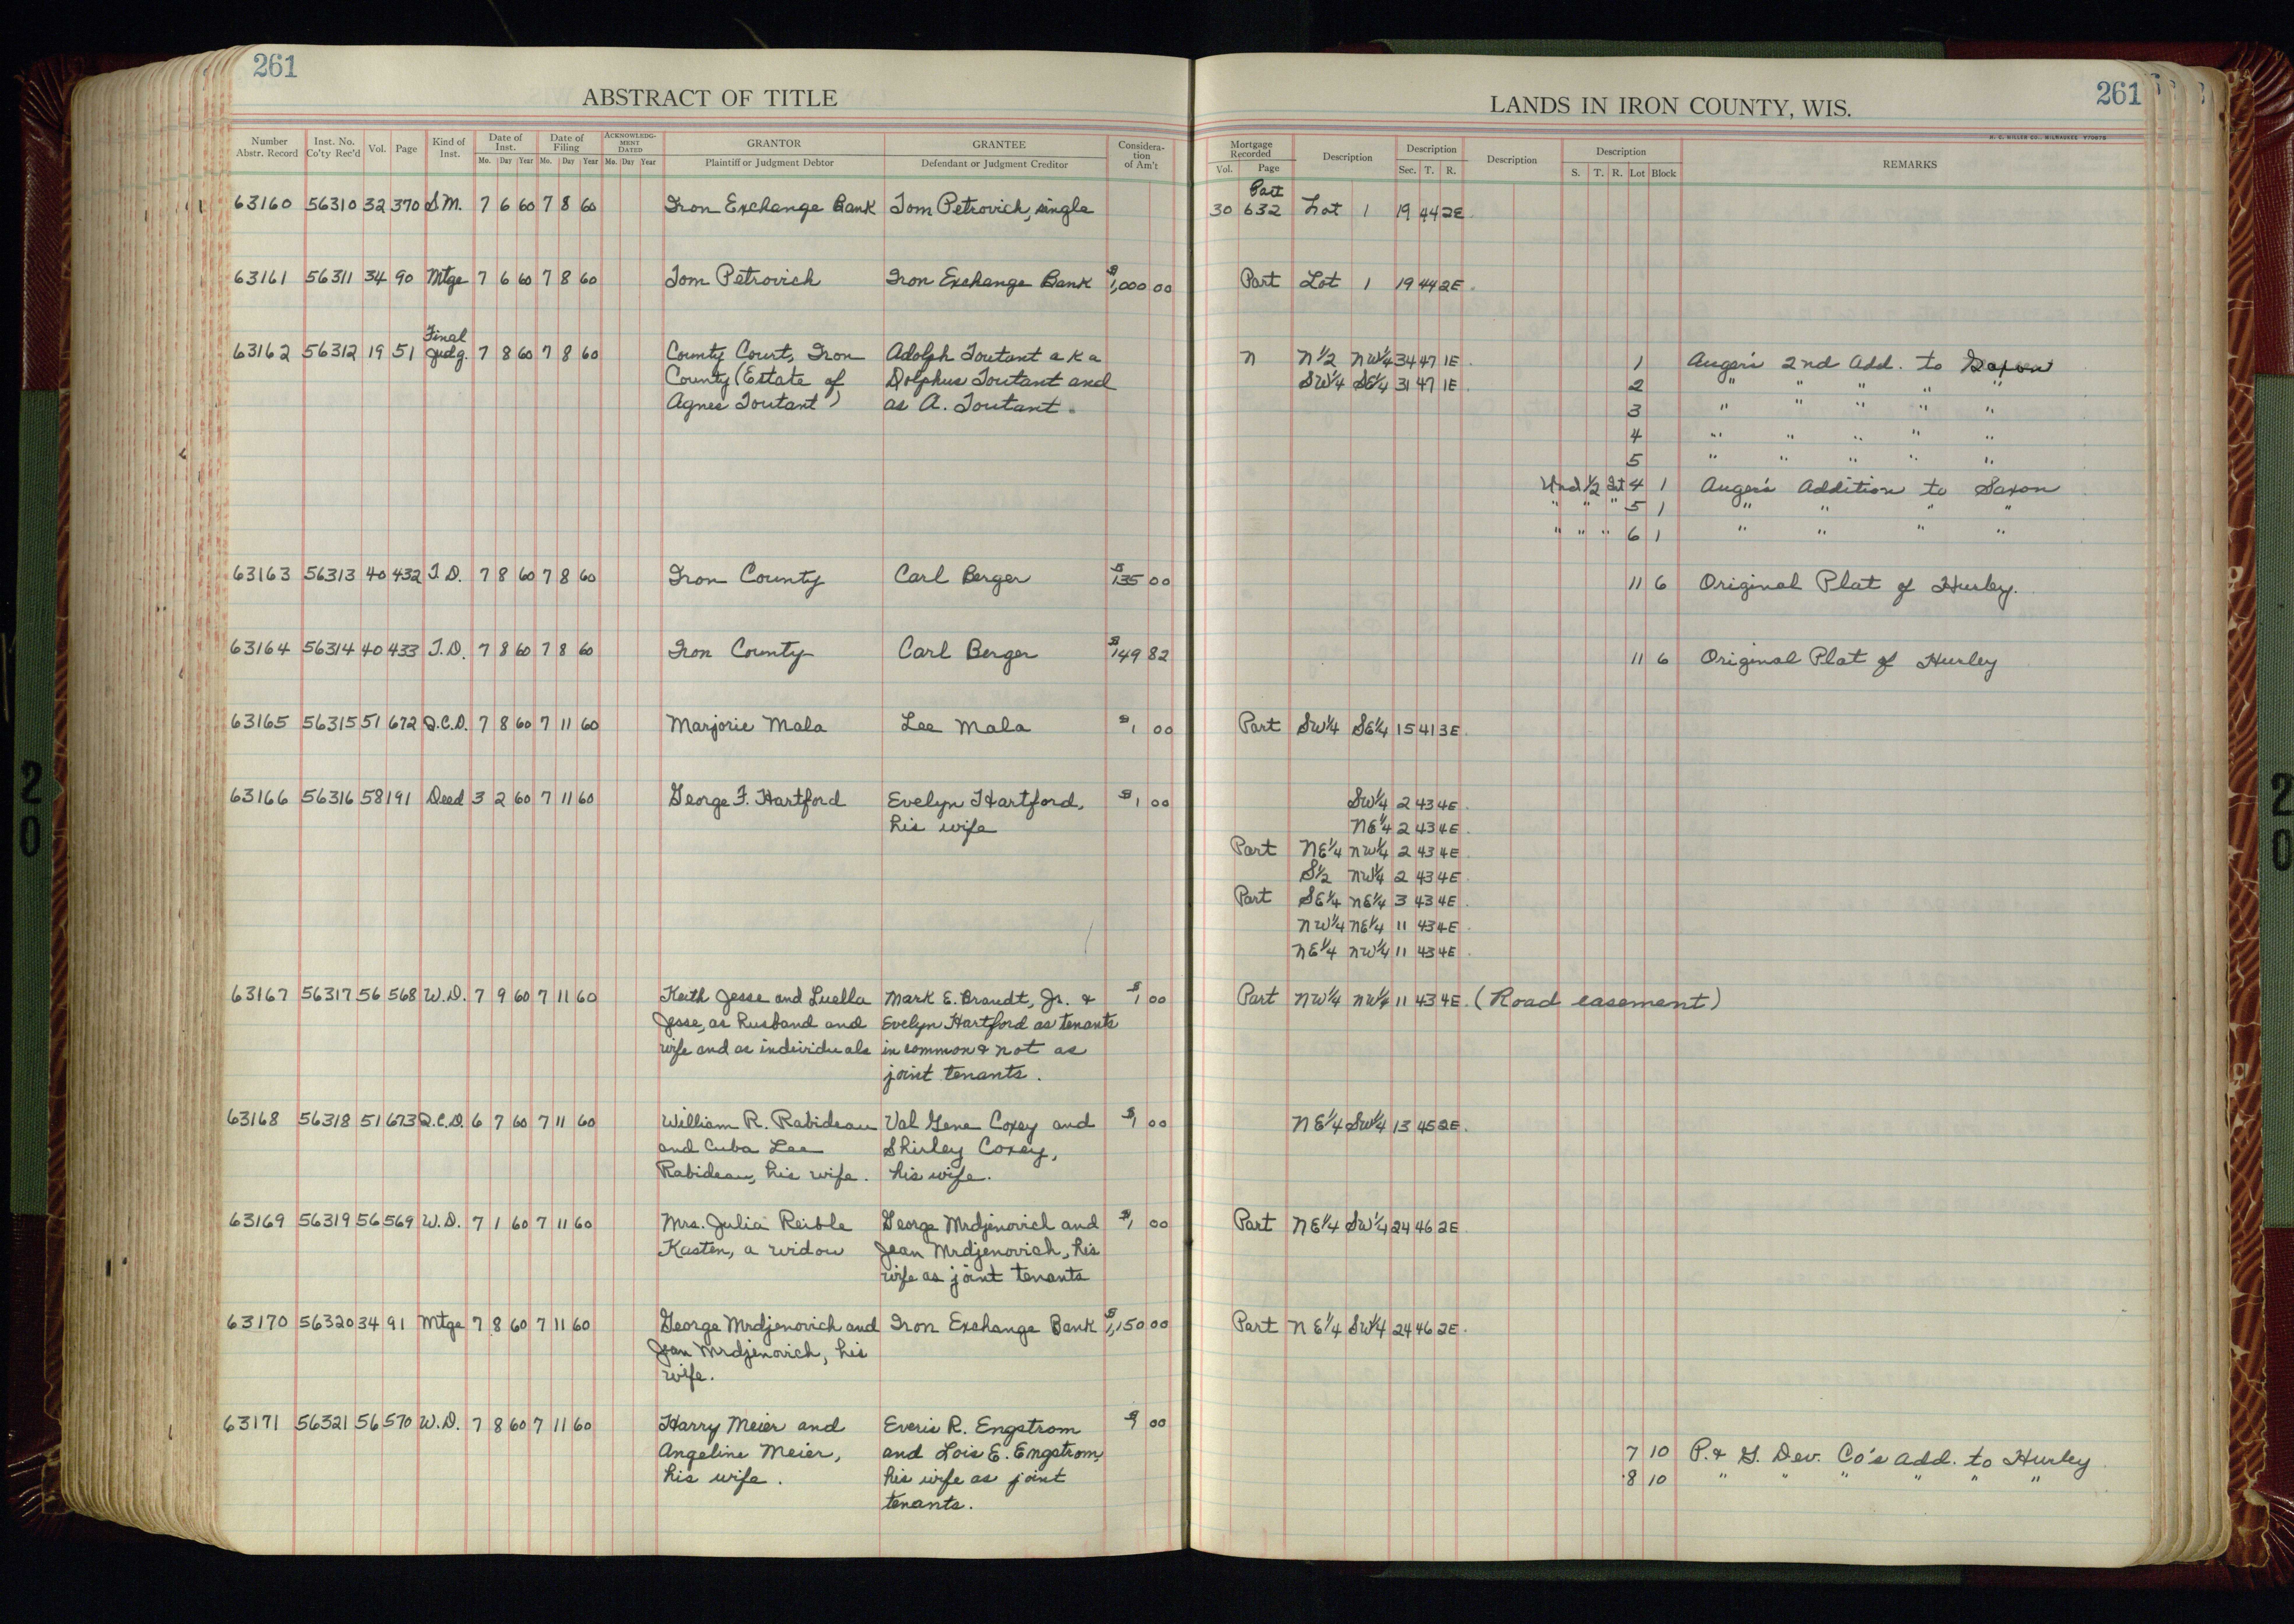 261
ABSTRACT OF TITLE
Number Abstr. Record | Inst. No. Co'ty Rec'd | Vol. | Page | Kind of Inst. | Date of Inst. Mo. Day Year | Date of Filing Mo. Day Year | ACKNOWLEDG-MENT DATED Mo. Day Year | GRANTOR Plaintiff or Judgment Debtor | GRANTEE Defendant or Judgment Creditor | Considera-tion of Am't
63160 56310 32 370 S.M. 7 6 60 7 8 60 Iron Exchange Bank Tom Petrovich, single
63161 56311 34 90 Mtge 7 6 60 7 8 60 Tom Petrovich Iron Exchange Bank $1,000 00
Final
63162 56312 19 51 Judg. 7 8 60 7 8 60 County Court, Iron Adolph Toutant a k a
County (Estate of Dolphus Toutant and
Agnes Toutant) as A. Toutant.
63163 56313 40 432 T.D. 7 8 60 7 8 60 Iron County Carl Berger $135 00
63164 56314 40 433 T.D. 7 8 60 7 8 60 Iron County Carl Berger $149 82
63165 56315 51 672 Q.C.D. 7 8 60 7 11 60 Marjorie Mala Lee Mala $1 00
63166 56316 58 191 Deed 3 2 60 7 11 60 George F. Hartford Evelyn Hartford, $1 00
his wife
63167 56317 56 568 W.D. 7 9 60 7 11 60 Keith Jesse and Luella Mark E. Brandt, Jr. & $1 00
Jesse, as husband and Evelyn Hartford as tenants
wife and as individuals in common & not as
joint tenants.
63168 56318 51 673 Q.C.D. 6 7 60 7 11 60 William R. Rabideau Val Gene Coxey and $1 00
and Cuba Lee Shirley Coxey,
Rabideau, his wife. his wife.
63169 56319 56 569 W.D. 7 1 60 7 11 60 Mrs. Julia Reible George Mrdjenovich and $1 00
Kasten, a widow Jean Mrdjenovich, his
wife as joint tenants
63170 56320 34 91 Mtge 7 8 60 7 11 60 George Mrdjenovich and Iron Exchange Bank $1,150 00
Jean Mrdjenovich, his
wife.
63171 56321 56 570 W.D. 7 8 60 7 11 60 Harry Meier and Everis R. Engstrom $1 00
Angeline Meier, and Lois E. Engstrom,
his wife. his wife as joint
tenants.
261
LANDS IN IRON COUNTY, WIS.
H. C. MILLER CO., MILWAUKEE
Mortgage Recorded Vol. Page | Description | Description Sec. T. R. | Description | Description S. T. R. Lot Block | REMARKS
Part
30 632 Lot 1 19 44 2E
Part Lot 1 19 44 2E.
N N1/2 NW1/4 34 47 1E. 1 Auger's 2nd Add. to Saxon
SW1/4 SE1/4 31 47 1E. 2 " " " " "
3 " " " " "
4 " " " " "
5 " " " " "
Und 1/2 Int 4 1 Auger's Addition to Saxon
" " " 5 1 " " " "
" " " 6 1 " " " "
11 6 Original Plat of Hurley.
11 6 Original Plat of Hurley
Part SW1/4 SE1/4 15 41 3E.
SW1/4 2 43 4E.
NE1/4 2 43 4E.
Part NE1/4 NW1/4 2 43 4E.
S1/2 NW1/4 2 43 4E.
Part SE1/4 NE1/4 3 43 4E.
NW1/4 NE1/4 11 43 4E.
NE1/4 NW1/4 11 43 4E.
Part NW1/4 NW1/4 11 43 4E. (Road easement)
NE1/4 SW1/4 13 45 2E.
Part NE1/4 SW1/4 24 46 2E.
Part NE1/4 SW1/4 24 46 2E.
7 10 P. & G. Dev. Co's add. to Hurley
8 10 " " " " " "
20
20